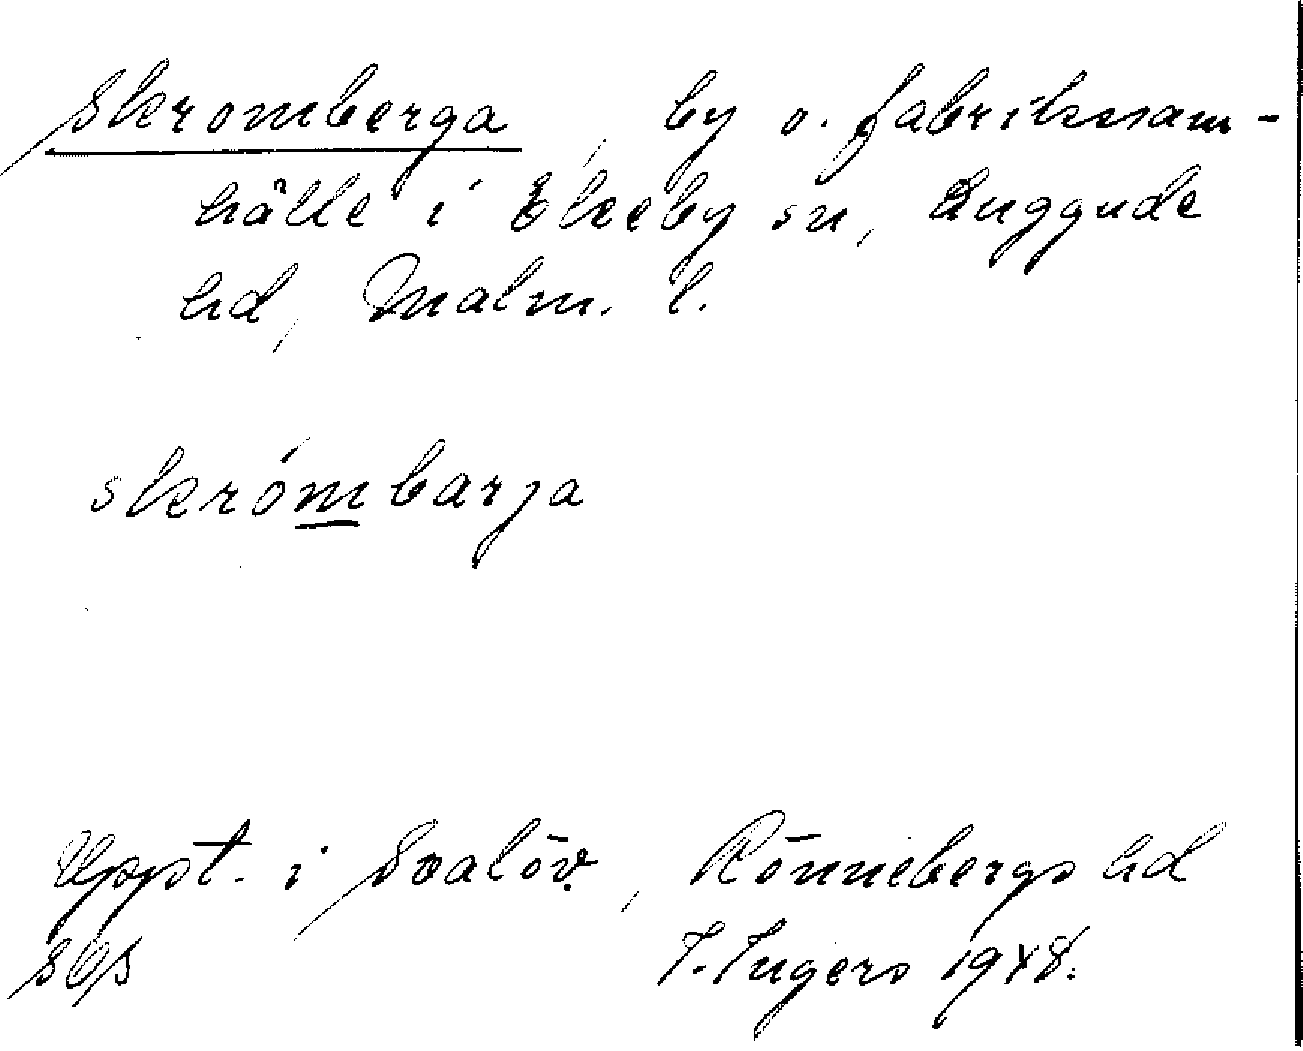 Skromberga, by o. fabrikssam-
hälle i Ekeby sn, Luggude
hd, Malm. l.
skrómbarja
Uppt. i Svalöv, Rönnebergs hd
I. Ingers 1948.